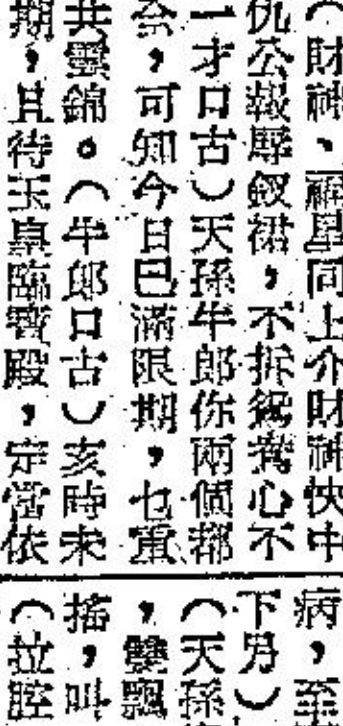 （財神、福星同上介財神快中
仇公報孽釵裙，不拆鴛鴦心不
一才口古）天孫牛郎你兩個都
会，可知今日已滿限期，乜重
共雲錦。（牛郎口古）亥時未
期，且待玉皇臨寶殿，定當依
病，至
下男）
（天孫
，雙飄
搖，叫
（拉腔